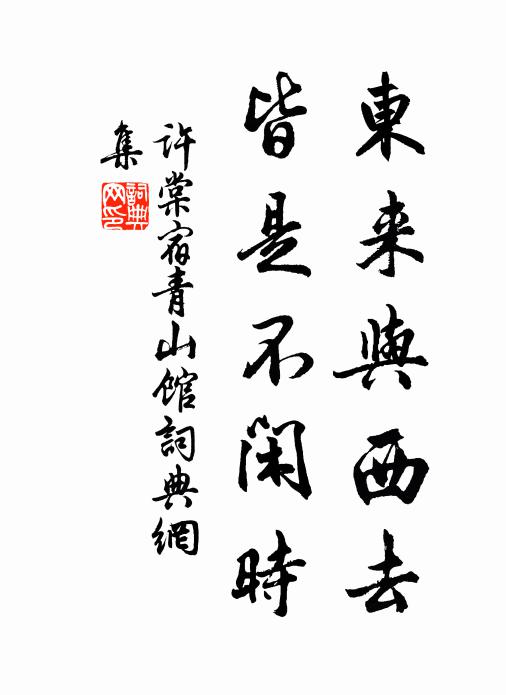 東来與西去
皆是不閑時
許棠宿青山館詞典網
集
詞典
网印